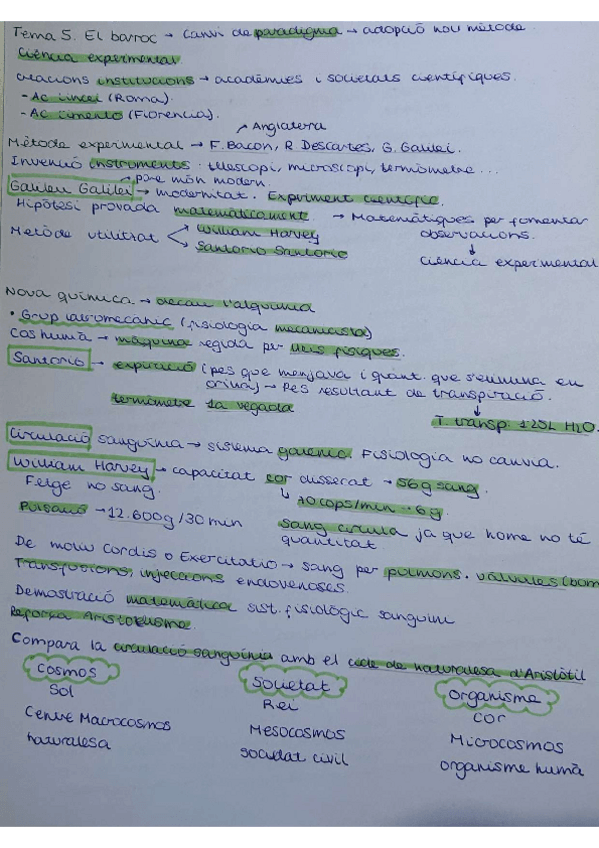 Tema 5. El barroc → Canvi de paradigma → adopció nou mètode
Ciència experimental.
creacions institucions → acadèmies i societats científiques.
- Ac lincei (Roma).
- Ac cimento (Florencia).
↗ Anglaterra
Mètode experimental → F. Bacon, R. Descartes, G. Galilei.
Invenció instruments: telescopi, microscopi, termòmetre...
↗ pare món modern.
Galileu Galilei → modernitat. Experiment científic.
Hipòtesi provada matemàticament. → Matemàtiques per fomentar
observacions.
↓
ciència experimental
Metòde utilitzat < William Harvey
Santorio Santorio
Nova química → deixen l'alquimia
• Grup iatromecànic (fisiologia mecanicista)
Cos humà → màquina regida per lleis físiques.
Santorio → expiració (pes que menjava i quant. que s'elimina en
orina) → Pes resultant de transpiració.
↓
termòmetre 1a vegada
T. transp: 1'25L H2O.
Circulació sanguínia → sistema galènic. Fisiologia no canvia.
William Harvey → capacitat cor dissecat → 56g sang.
Fetge no sang.
↳ 70 cops/min ·· 6g.
Pulsació → 12.600g/30min
sang circula ja que home no té
quantitat.
De motu Cordis o Exercitatio → sang per pulmons. vàlvules (bom
Transfusions, injeccions endovenoses.
Demostració matemàtica sist. fisiològic sanguini
Reforça Aristotelisme.
Compara la circulació sanguínia amb el cicle de naturalesa d'Aristòtil
Cosmos
Sol
Centre Macrocosmos
naturalesa
Societat
Rei
Mesocosmos
societat civil
Organisme
cor
Microcosmos
organisme humà